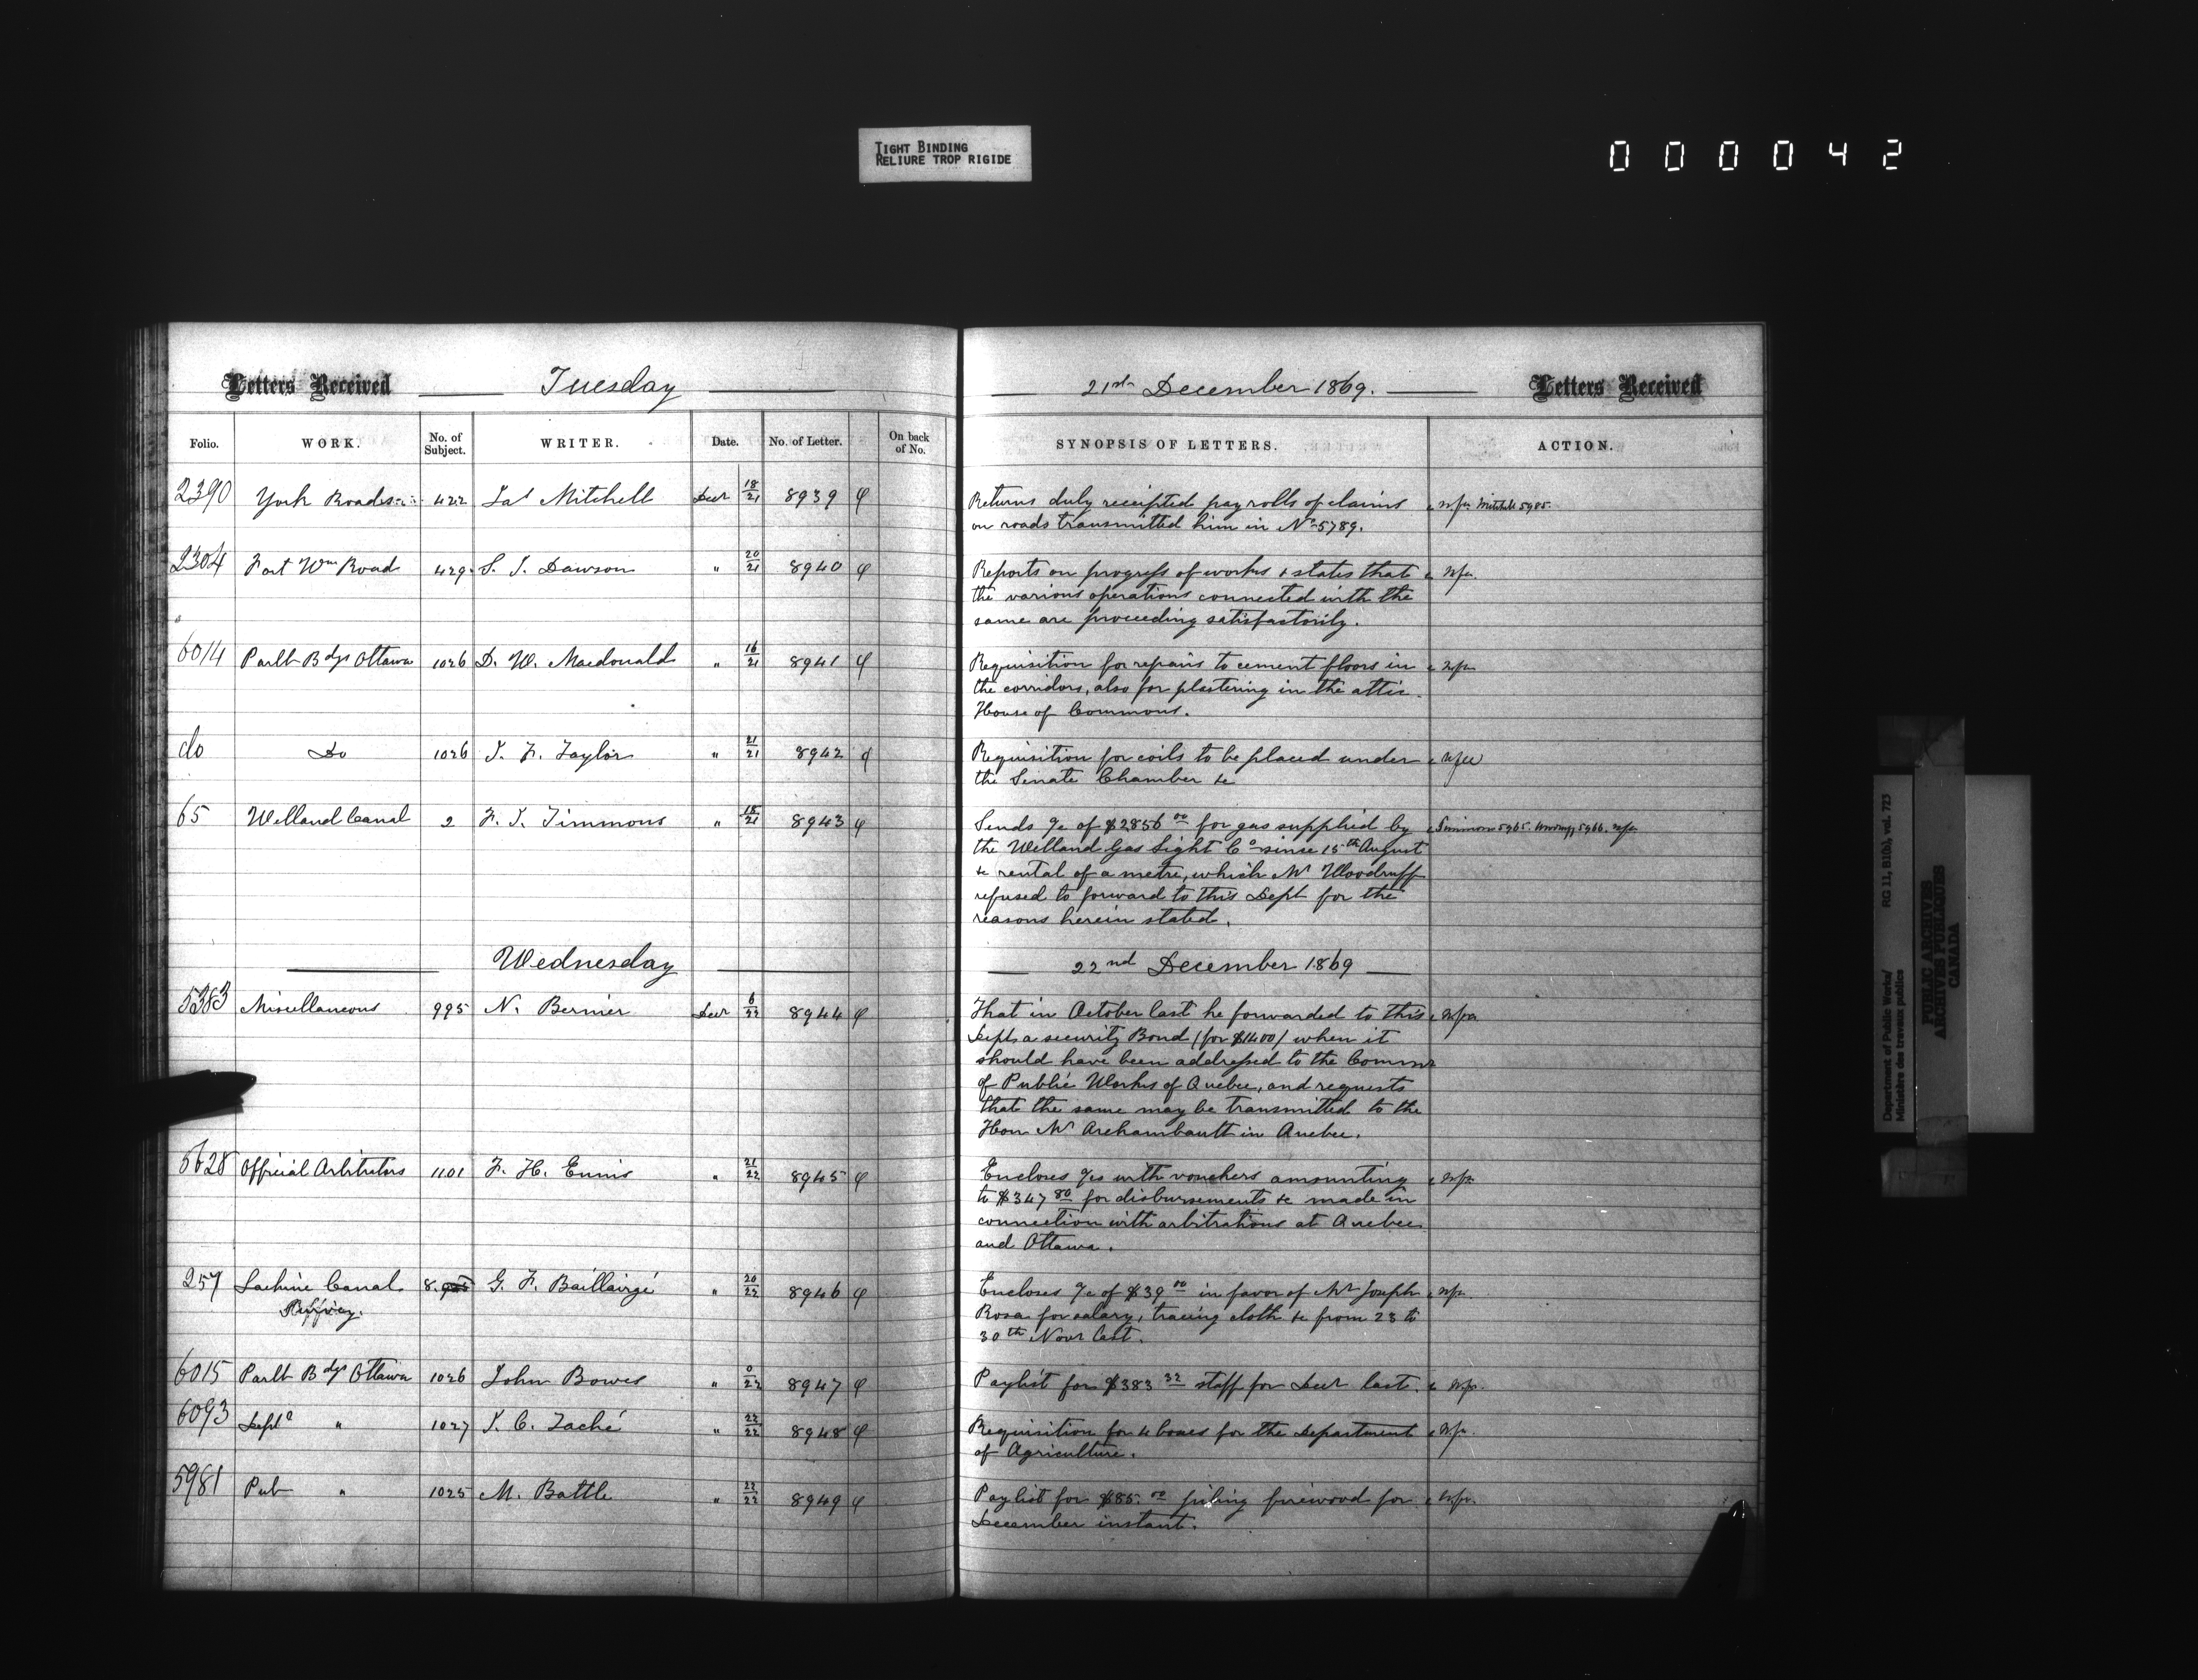 TIGHT BINDING
RELIURE TROP RIGIDE
000042
Letters Received Tuesday 21st December 1869. Letters Received
Folio. WORK. No. of Subject. WRITER. Date. No. of Letter. On back of No. SYNOPSIS OF LETTERS. ACTION.
2390 York Roads 422 Jas Mitchell Decr 18/21 8939 Returns duly receipted pay rolls of claims Mitchell 5985.
on roads transmitted him in No 5789.
2304 Fort Wm Road 429 S. J. Dawson " 20/21 8940 Reports on progress of works & states that
the various operations connected with the
same are proceeding satisfactorily.
6014 Parlt Bdgs Ottawa 1026 D. W. Macdonald " 16/21 8941 Requisition for repairs to cement floors in
the corridors, also for plastering in the attic
House of Commons.
do Do 1026 J. F. Taylor " 21/21 8942 Requisition for coils to be placed under
the Senate Chamber &c
65 Welland Canal 2 F. J. Timmons " 18/21 8943 Sends a/c of $2856 00 for gas supplied by 5965. 5966.
the Welland Gas Light Co since 15th August
& rental of a metre, which Mr Woodruff
refused to forward to this Dept for the
reasons herein stated.
Wednesday 22nd December 1869
5383 Miscellaneous 995 N. Bernier Decr 6/22 8944 That in October last he forwarded to this
Dept a security Bond (for $1400) when it
should have been addressed to the Commr
of Public Works of Quebec, and requests
that the same may be transmitted to the
Hon Mr Archambault in Quebec.
5628 Official Arbitrators 1101 F. H. Ennis " 21/22 8945 Encloses a/cs with vouchers amounting
to $347 80 for disbursements &c made in
connection with arbitrations at Quebec
and Ottawa.
257 Lachine Canal 8. G. F. Baillairgé " 20/22 8946 Encloses a/c of $39 00 in favor of Mr Joseph
Rosa for salary, tracing cloth &c from 23 to
30th Novr last.
6015 Parlt Bdgs Ottawa 1026 John Bowes " 0/22 8947 Paylist for $383 32 staff for Decr last.
6093 Deptl " 1027 J. C. Taché " 22/22 8948 Requisition for 4 boxes for the Department
of Agriculture.
5981 Pub " 1025 M. Battle " 22/22 8949 Paylist for $85. 00 piling firewood for
December instant.
Department of Public Works/ RG 11, B1(b), vol. 723
Ministère des travaux publics
PUBLIC ARCHIVES
ARCHIVES PUBLIQUES
CANADA